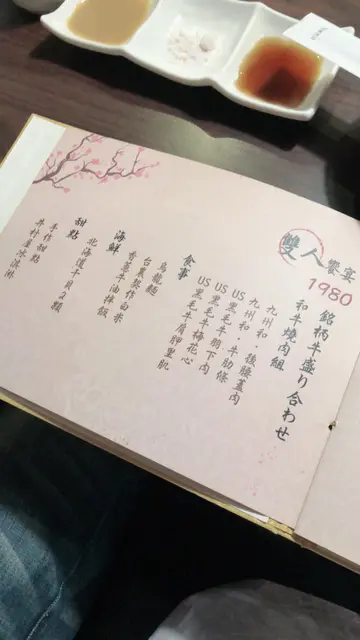 雙人饗宴
1980
銘柄牛盛り合わせ
和牛燒肉組
九州和牛後腰蓋肉
九州和牛肋條
US黑毛牛胸下肉
US黑毛牛梅花心
US黑毛牛肩胛里肌
食事
烏龍麵
台東製作白米
香蔥牛油拌飯
海鮮
北海道干貝2顆
甜點
手作甜點
井村屋冰淇淋